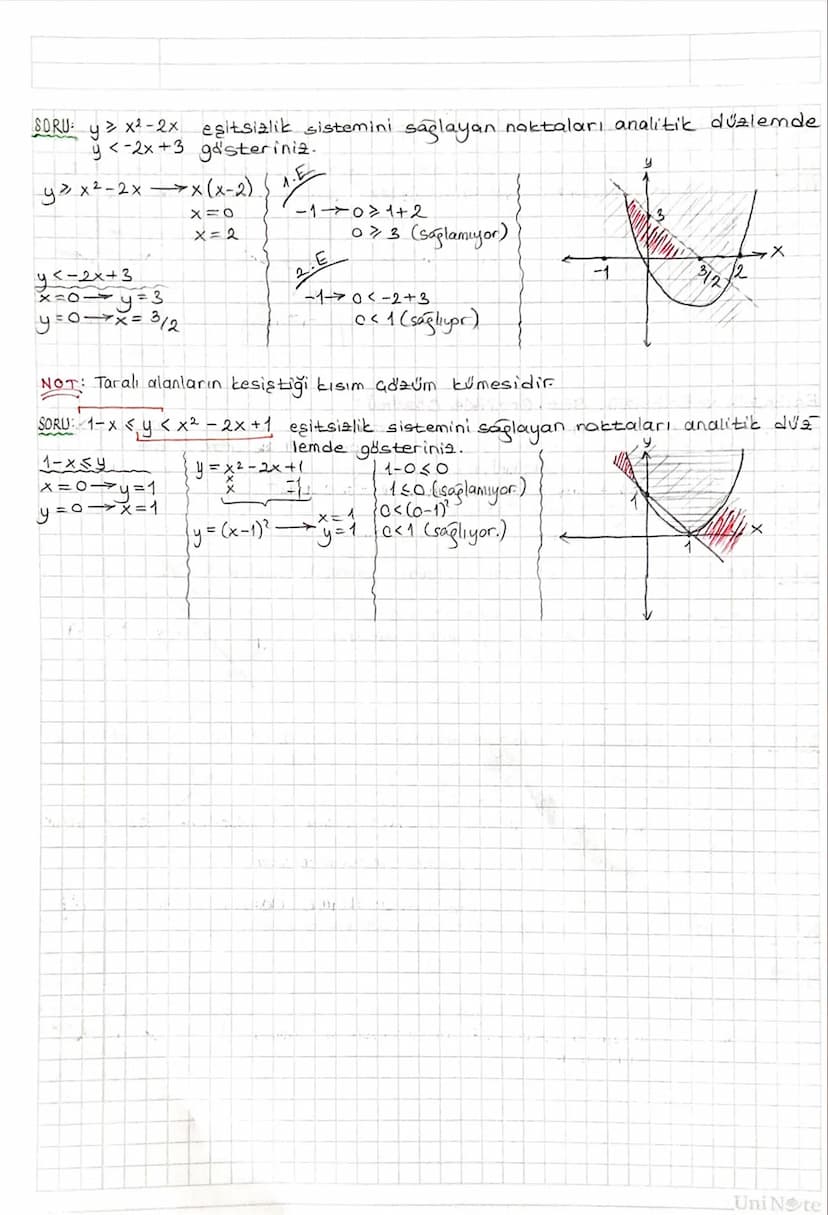 SORU: y ≥ x² - 2x eşitsizlik sistemini sağlayan noktaları analitik düzlemde
y < -2x + 3 gösteriniz.
y ≥ x² - 2x → x(x-2)
x = 0
x = 2
y < -2x + 3
x = 0 → y = 3
y = 0 → x = 3/2
1.E
-1 → 0 ≥ 1 + 2
0 ≥ 3 (sağlamıyor)
2.E
-1 → 0 < -2 + 3
0 < 1 (sağlıyor)
y
3
x
-1
3/2
2
NOT: Taralı alanların kesiştiği kısım çözüm kümesidir.
SORU: 1 - x ≤ y < x² - 2x + 1 eşitsizlik sistemini sağlayan noktaları analitik düz
lemde gösteriniz.
1 - x ≤ y
x = 0 → y = 1
y = 0 → x = 1
y = x² - 2x + 1
x -1
x -1
y = (x-1)² → x = 1
y = 1
1 - 0 ≤ 0
1 ≤ 0 (sağlamıyor.)
0 < (0-1)²
0 < 1 (sağlıyor.)
y
1
1
x
UniNote